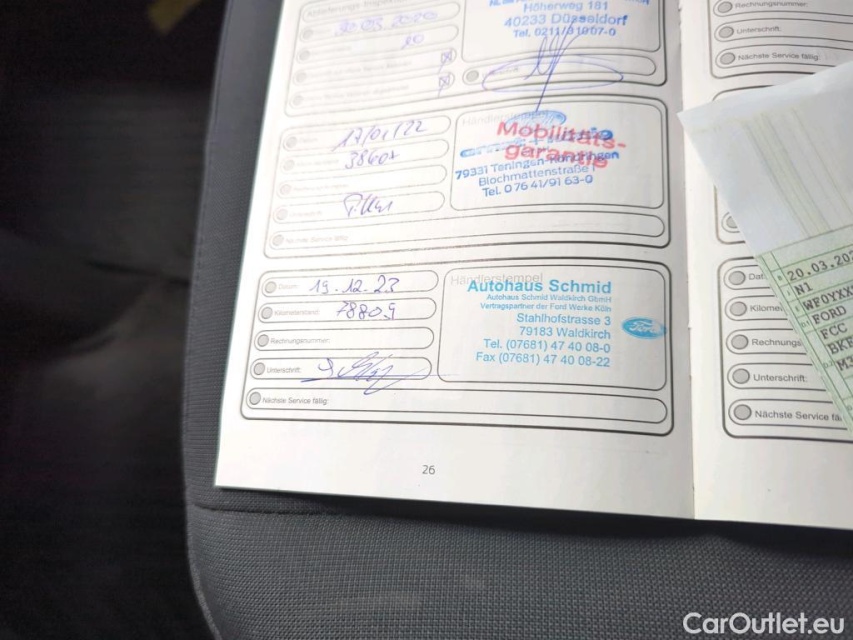 Höherweg 181
40233 Düsseldorf
Rechnungsnummer:
Unterschrift:
Nächste Service fällig:
17/01/22
Mobilitäts-
garantie
79331 Teningen
Blochmattenstraße 1
Tel. 0 76 41/91 63-0
Nächste Service fällig:
Datum:
19.12.23
Händlerstempel
Kilometerstand:
78809
Rechnungsnummer:
Unterschrift:
Nächste Service fällig:
Autohaus Schmid
Autohaus Schmid Waldkirch GmbH
Vertragspartner der Ford Werke Köln
Stahlhofstrasse 3
79183 Waldkirch
Tel. (07681) 47 40 08-0
Fax (07681) 47 40 08-22
Ford
26
20.03.20
N1
WF0YXX
FORD
FCC
Dat
Kilome
Rechnungs
Unterschrift:
Nächste Service fällig:
CarOutlet.eu